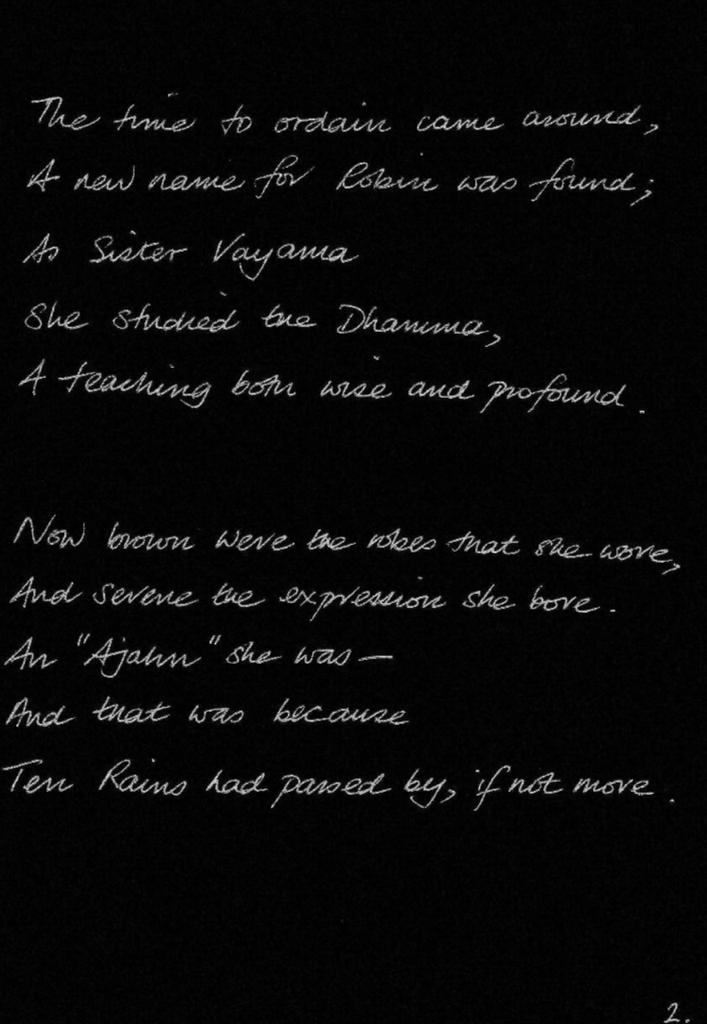 The time to ordain came around,
A new name for Robin was found;
As Sister Vayama
She studied the Dhamma,
A teaching both wise and profound.
Now brown were the robes that she wore,
And serene the expression she bore.
An "Ajahn" she was —
And that was because
Ten Rains had passed by, if not more.
2.